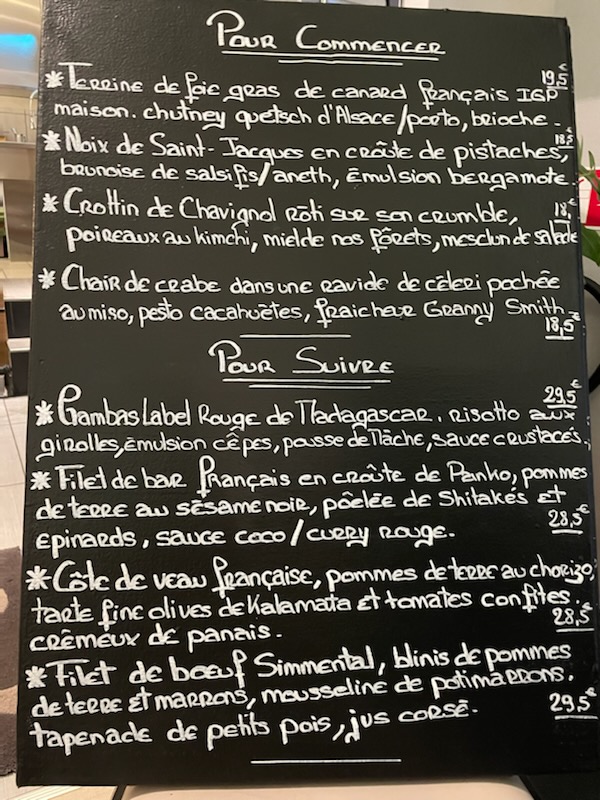 Pour Commencer
*Terrine de foie gras de canard français IGP 19,5€
maison. chutney quetsch d'Alsace/porto, brioche.
*Noix de Saint-Jacques en croûte de pistaches, 18,5
brunoise de salsifis/aneth, émulsion bergamote.
*Crottin de Chavignol rôti sur son crumble, 18,€
poireaux au kimchi, miel de nos fôrets, mesclun de salade
*Chair de crabe dans une ravide de céleri pochée
au miso, pesto cacahuètes, fraicheur Granny Smith.
18,5€
Pour Suivre
29,5€
*Gambas Label Rouge de Madagascar. risotto aux
girolles, émulsion cêpes, pousse de Mâche, sauce crustacés.
*Filet de bar français en croûte de Panko, pommes
de terre au sésame noir, pôelée de Shitakés et
épinards, sauce coco/curry rouge. 28,5€
*Côte de veau française, pommes de terre au chorizo,
tarte fine olives de Kalamata et tomates confites.
crèmeux de panais. 28,5€
*Filet de boeuf Simmental, blinis de pommes
de terre et marrons, mousseline de potimarrons.
tapenade de petits pois, jus corsé. 29,5€